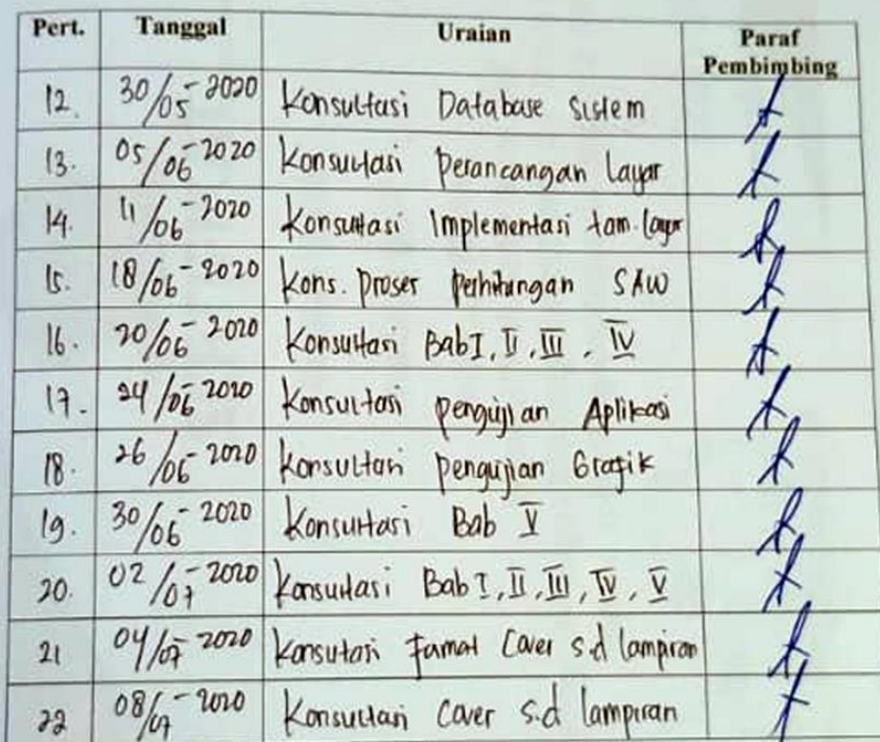 Pert. Tanggal Uraian Paraf Pembimbing
12. 30/05-2020 Konsultasi Database Sistem
13. 05/06-2020 Konsultasi Perancangan Layar
14. 11/06-2020 Konsultasi Implementasi tam. layar
15. 18/06-2020 Kons. Proses Perhitungan SAW
16. 20/06-2020 Konsultasi Bab I, II, III, IV
17. 24/06-2020 Konsultasi pengujian Aplikasi
18. 26/06-2020 Konsultasi pengujian Grafik
19. 30/06-2020 Konsultasi Bab V
20. 02/07-2020 Konsultasi Bab I, II, III, IV, V
21 04/07-2020 Konsultasi Format Cover s.d lampiran
22 08/07-2020 Konsultasi Cover s.d lampiran